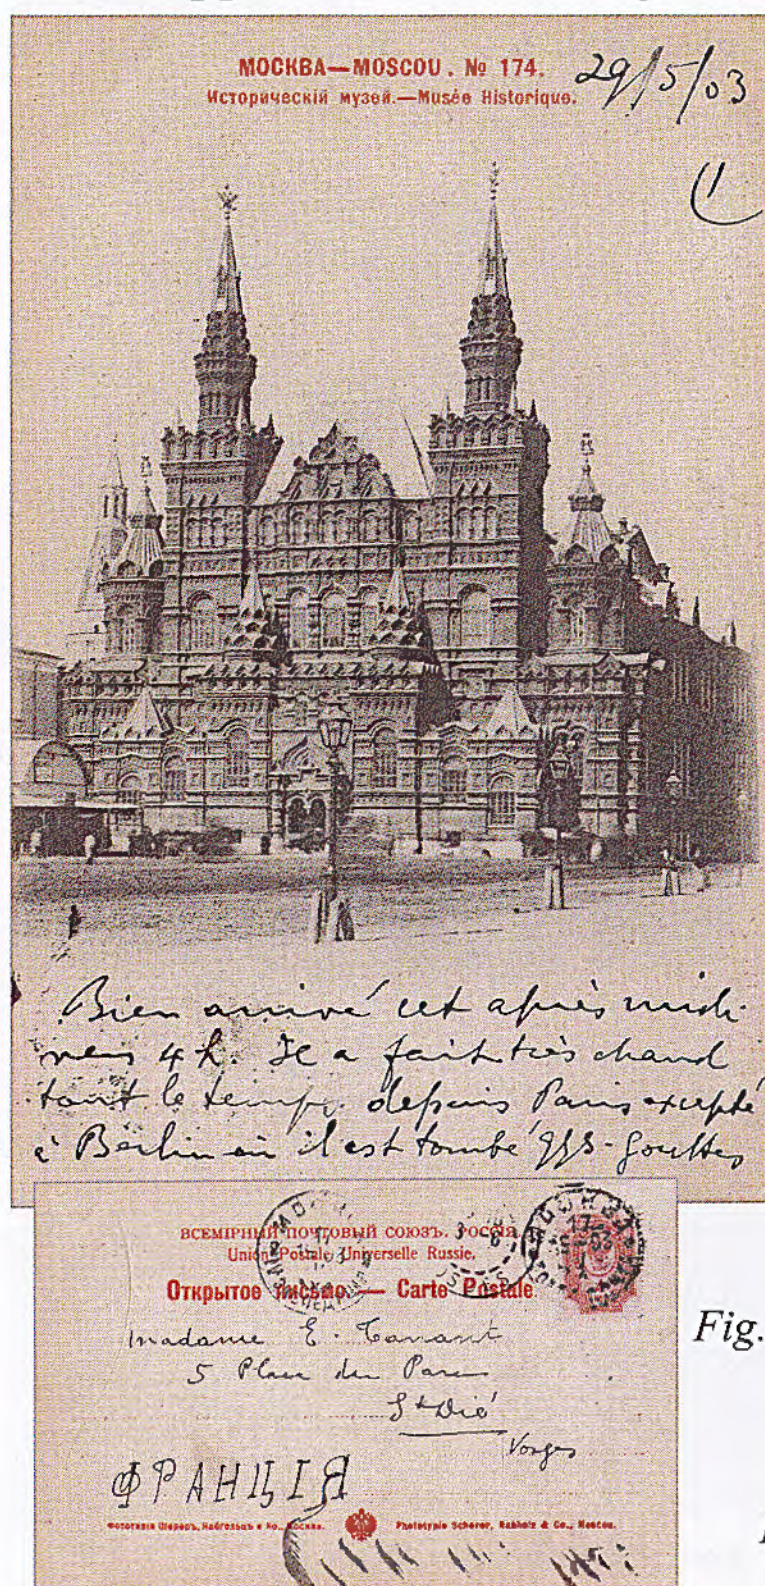 МОСКВА—MOSCOU. № 174.
Историческiй музей.—Musée Historique.
29/5/03
(1
Bien arrivé cet après midi
vers 4 h. Il a fait très chaud
tout le temps depuis Paris excepté
à Berlin où il est tombé qqs-gouttes
ВСЕМIРНЫЙ ПОЧТОВЫЙ СОЮЗЪ. РОССIЯ.
Union Postale Universelle Russie.
Открытое письмо. — Carte Postale.
Madame E.
5 Place du Parc
St Dié
Vosges
ФРАНЦIЯ
Фототипiя Шереръ, Набгольцъ и Ко., Москва.
Phototypie Scherer, Nabholz & Co., Moscou.
Fig.